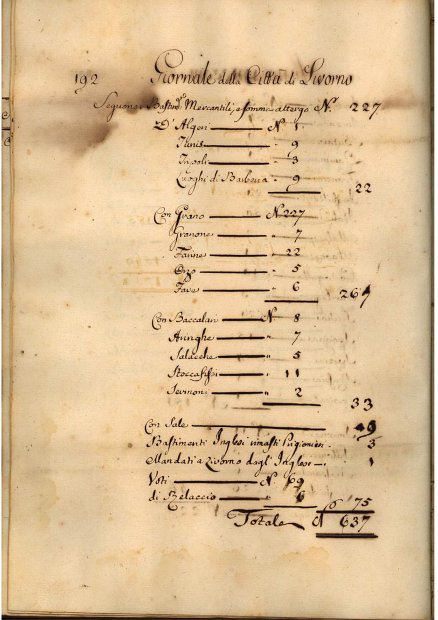 192 Giornale della Città di Livorno
Seguono i Bastimti Mercantili, e somma altergo No. 227
D'Algeri N 1
Tunis " 9
Tripoli " 3
Luoghi di Barberia " 9
22
Con Grano N. 227
Granone " 7
Farine " 22
Orzo " 5
Fave " 6
267
Con Baccalari N 8
Aringhe " 7
Salacche " 5
Stoccafissi " 11
Sermoni " 2
33
Con Sale 9
Bastimenti Inglesi rimasti Prigionieri 3
Mandati a Livorno dagl'Inglesi 1
Voti N 69
di Rilascio " 6
75
Totale N 637